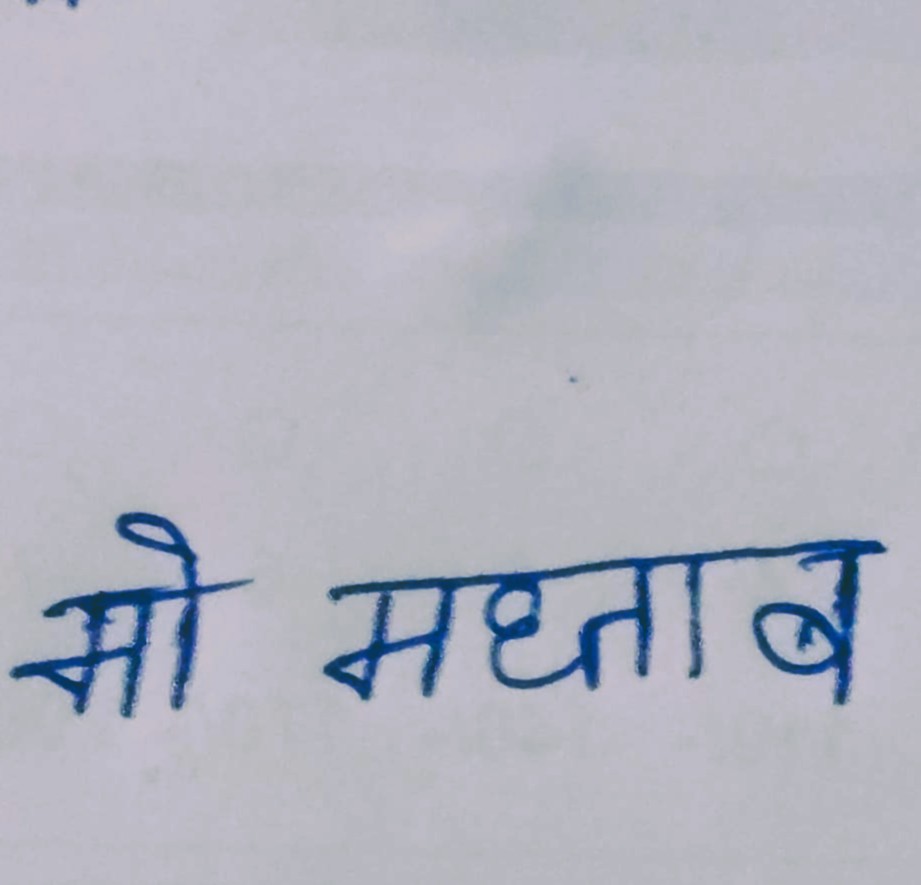 मो मध्ताब